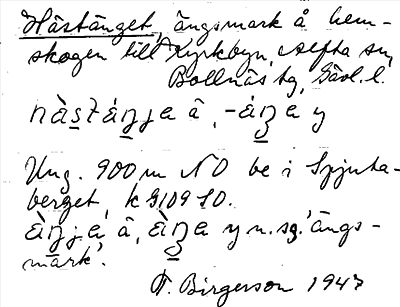 Hästänget, ängsmark å hem-
skogen till Kyrkbyn, Alfta sn,
Bollnäs tg, Gävl. l.
nàstáŋja â, -áŋa y
Ung. 900 m NO be i Spjuta-
berget, k
àŋja â, àŋa y n. sg. 'ängs-
mark'.
F. Birgerson 1947